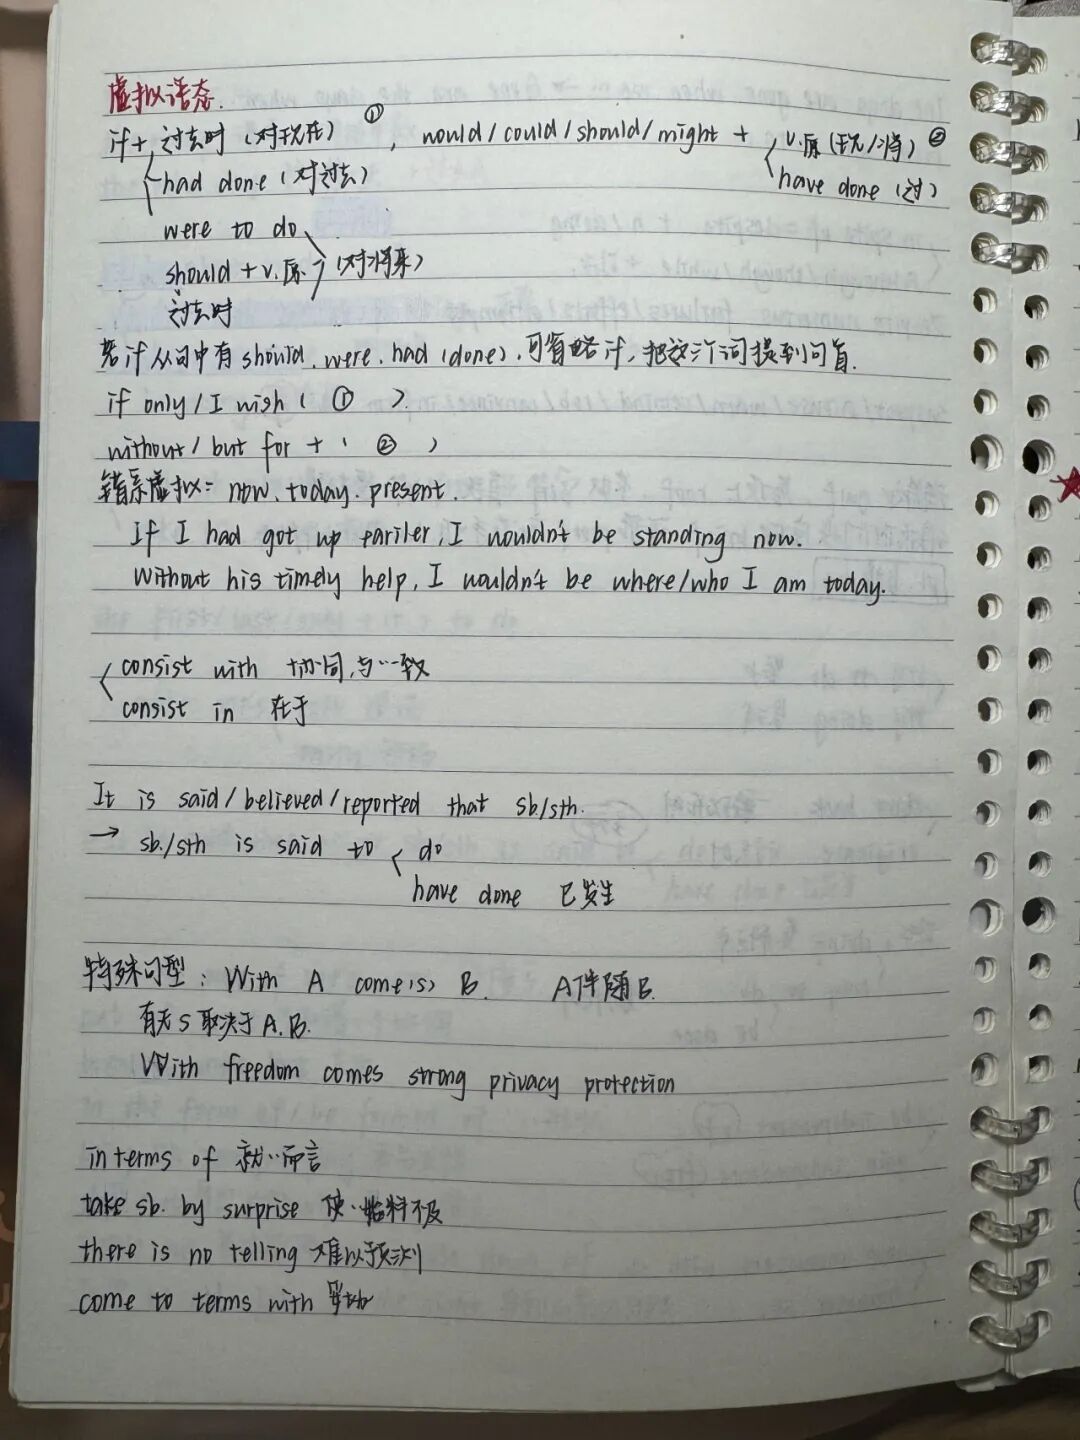 虚拟语态.
if + 过去时 (对现在) ①, would/could/should/might + v.原 (现/将) ②
had done (对过去) have done (过)
were to do
should + v.原 (对将来)
过去时
若 if 从句中有 should, were, had (done), 可省略 if, 把这三个词提到句首.
if only/I wish ( ① ).
without/but for + ( ② )
错综虚拟: now. today. present.
If I had got up eariler, I wouldn't be standing now.
Without his timely help, I wouldn't be where/who I am today.
consist with 协同, 与…一致
consist in 在于
It is said/believed/reported that sb/sth.
→ sb./sth is said to do
have done 已发生
特殊句型: With A come(s) B. A伴随B.
有无s取决于A.B.
With freedom comes strong privacy protection
in terms of 就…而言
take sb. by surprise 使…始料不及
there is no telling 难以预测
come to terms with